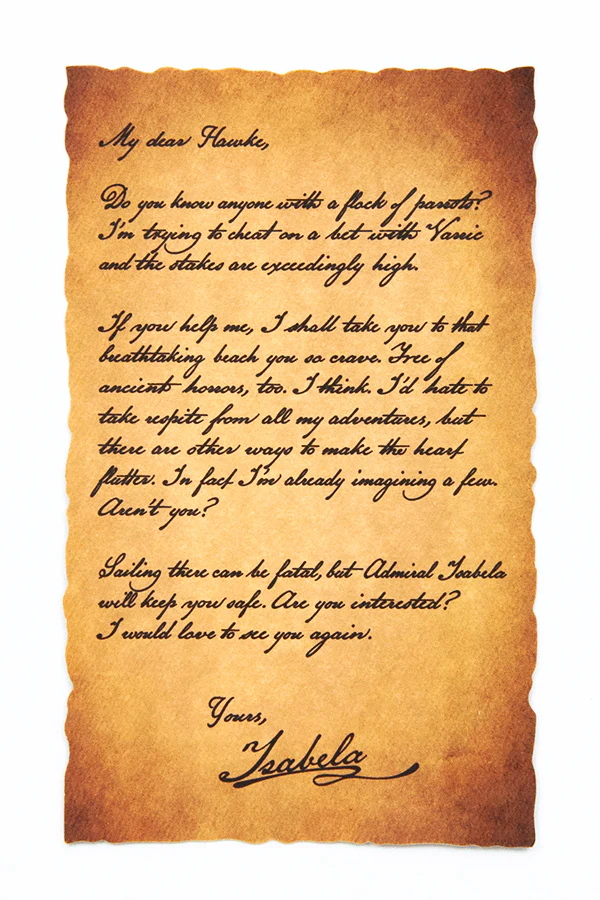 My dear Hawke,
Do you know anyone with a flock of parrots?
I'm trying to cheat on a bet with Varric
and the stakes are exceedingly high.
If you help me, I shall take you to that
breathtaking beach you so crave. Free of
ancient horrors, too. I think. I'd hate to
take respite from all my adventures, but
there are other ways to make the heart
flutter. In fact I'm already imagining a few.
Aren't you?
Sailing there can be fatal, but Admiral Isabela
will keep you safe. Are you interested?
I would love to see you again.
Yours,
Isabela